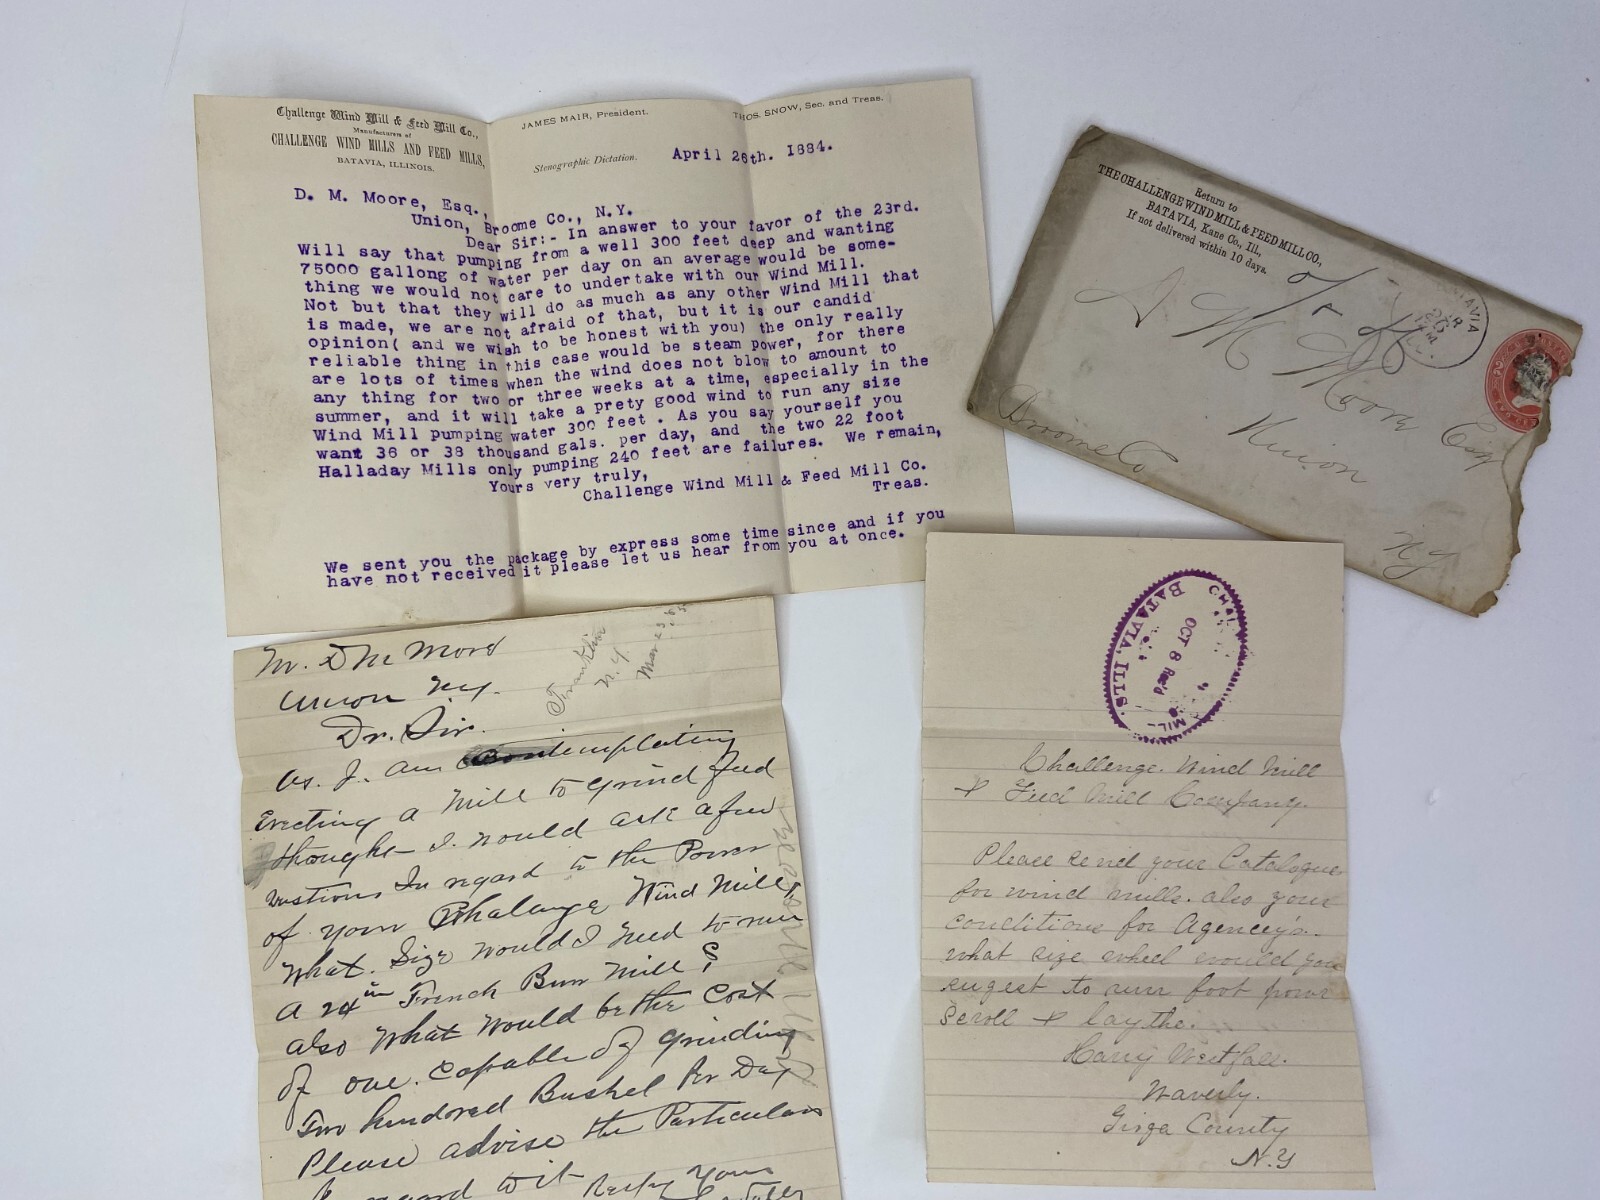 Challenge Wind Mill & Feed Mill Co.,
Manufacturers of
CHALLENGE WIND MILLS AND FEED MILLS,
BATAVIA, ILLINOIS.
JAMES MAIR, President.
THOS. SNOW, Sec. and Treas.
Stenographic Dictation.
April 26th. 1884.
D. M. Moore, Esq.,
Union, Broome Co., N.Y.
Dear Sir:- In answer to your favor of the 23rd.
Will say that pumping from a well 300 feet deep and wanting
75000 gallong of water per day on an average would be some-
thing we would not care to undertake with our Wind Mill.
Not but that they will do as much as any other Wind Mill that
is made, we are not afraid of that, but it is our candid
opinion( and we wish to be honest with you) the only really
reliable thing in this case would be steam power, for there
are lots of times when the wind does not blow to amount to
any thing for two or three weeks at a time, especially in the
summer, and it will take a pretty good wind to run any size
Wind Mill pumping water 300 feet . As you say yourself you
want 36 or 38 thousand gals. per day, and the two 22 foot
Halladay Mills only pumping 240 feet are failures. We remain,
Yours very truly,
Challenge Wind Mill & Feed Mill Co.
Treas.
We sent you the package by express some time since and if you
have not received it please let us hear from you at once.
Return to
THE CHALLENGE WIND MILL & FEED MILL CO.,
BATAVIA, Kane Co., Ill.,
If not delivered within 10 days.
D M Moore Esq
Union
Broome Co
N.Y
Mr. D M Mord
Union N.Y.
Franklin
N.Y
Mar 23
Dr. Sir.
As. I. am Contemplating
Erecting a Mill to grind feed
thought I. would ask a few
In regard to the Power
of your Wind Mill,
What. Size would I need to run
a 24 in French Burr Mill?
also What Would be the Cost
of one. Capable of grinding
Two hundred Bushel Per Day
Please advise the Particulars
regard to it
Yours
CHAL
MILL
BATAVIA, ILLS.
OCT 8 Rec'd
Challenge. Wind Mill
& Feed Mill Company.
Please send your Catalogue
for wind mills. also your
conditions for Agencey's.
what size wheel would you
sugest to run foot powr
Scroll & laythe.
Harry Westfall.
Waverly.
Tioga County
N.Y